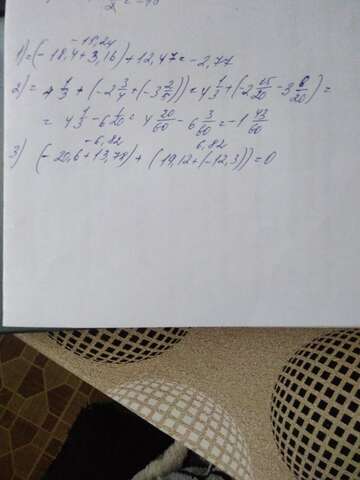 2 = -40
-15,24
1) = (-18,4+3,16)+12,47 = -2,77
2) = 4 1/3 + (-2 3/4 + (-3 2/5)) = 4 1/3 + (-2 15/20 - 3 8/20) =
= 4 1/3 - 6 3/20 = 4 20/60 - 6 9/60 = -1 49/60
-6,82 6,82
3) (-20,6+13,78) + (19,12+(-12,3)) = 0